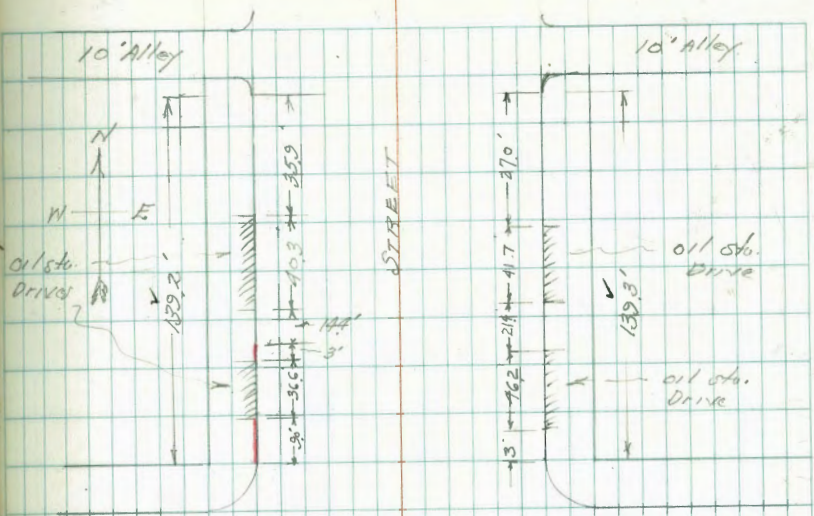 10' Alley
10' Alley
N
W E
oil sta.
Drives
139.2'
35.9'
40.3
14.4'
3'
36.6
9.0'
STREET
27.0'
41.7
21.4
46.2
3'
139.3'
oil sta.
Drive
oil sta.
Drive